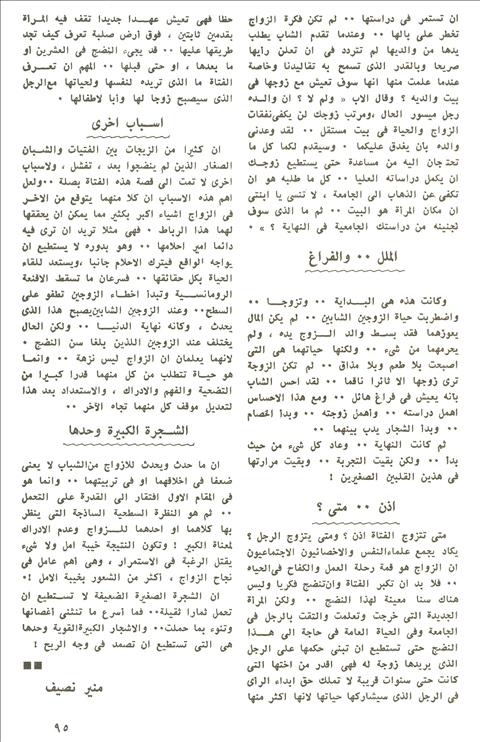 ان تستمر فى دراستها ٠٠ لم تكن فكرة الزواج
تخطر على بالها ٠٠ وعندما تقدم الشاب يطلب
يدها من والديها لم تتردد فى ان تعلن رأيها
صريحا وبالقدر الذى تسمح به تقاليدنا وخاصة
عندما علمت منها انها سوف تعيش مع زوجها فى
بيت والديه ؟ وقال الاب « ولم لا ؟ ان والــده
رجل ميسور الحال ،ومرتب زوجك لن يكفى نفقات
الزواج والحياة فى بيت مستقل ٠٠ لقد وعدنى
والده بان يغدق عليكما ٠ وسيقدم لكما كل ما
تحتاجان اليه من مساعدة حتى يستطيع زوجــك
ان يكمل دراسته العليا ٠٠ كل ما طلبه هو ان
تكفى عن الذهاب الى الجامعة ، لا تنسى يا ابنتى
ان مكان المرأة هو البيت ٠٠ ثم ما الذى سوف
تجنينه من دراستك الجامعية فى النهاية ؟ » ٠
الملل ٠٠ والفراغ
وكانت هذه هى البــداية ٠٠ وتزوجـا ٠٠
واضطربت حياة الزوجين الشابين ٠٠ لم يكن المال
يعوزهما فقد بسط والد الــزوج يده ، ولم
يحرمهما من شىء ٠٠ ولكنها حياتهما هى التى
اصبحت بلا طعم وبلا مذاق ٠٠ لم تكن الزوجة
ترى زوجها الا ثائرا ناقما ٠٠ لقد احس الشاب
بانه يعيش فى فراغ هائل ٠٠ ومع هذا الاحساس
اهمل دراسته ٠٠ وأهمل زوجته ٠٠ وبدأ الخصام
٠٠ وبدأ الشجار يدب بينهما ٠٠
ثم كانت النهاية ٠٠ وعاد كل شىء من حيث
بدأ ٠٠ ولكن بقيت التجربة ٠٠ وبقيت مرارتها
فى هذين القلبين الصغيرين !
اذن ٠٠ متى ؟
متى تتزوج الفتاة اذن ؟ ومتى يتزوج الرجل ؟
يكاد يجمع علماءالنفس والاخصائيون الاجتماعيون
ان الزواج هو قمة رحلة العمل والكفاح فى الحياة
٠٠ فلا بد ان تكبر الفتاة وان تنضج فكريا وليس
هناك سنا معينة لهذا النضج ٠٠ ولكن المرأة
الجديدة التى خرجت وتعلمت والتقت بالرجل فى
الجامعة وفى الحياة العامة فى حاجة الى هــذا
النضج حتى تستطيع ان تبنى حكمها على الرجل
الذى يريدها زوجة له فهى اقدر من اختها التى
كانت حتى سنوات قريبة لا تملك حق ابداء الرأى
فى الرجل الذى سيشاركها حياتها لانها اكثر منها
حظا فهى تعيش عهــدا جديدا تقف فيه المرأة
بقدمين ثابتين ، فوق ارض صلبة تعرف كيف تجد
طريقها عليها ٠٠ قد يجىء النضج فى العشرين أو
ما بعدها ، او حتى قبلها ٠٠ المهم ان تعــرف
الفتاة ما الذى تريده لنفسها ولحياتها مع الرجل
الذى سيصبح زوجا لها وأبا لاطفالها ٠
اســباب اخرى
ان كثيرا من الزيجات بين الفتيات والشــبان
الصغار الذين لم ينضجوا بعد ، تفشل ، ولاسباب
اخرى لا تمت الى قصة هذه الفتاة بصلة ٠٠ ولعل
اهم هذه الاسباب ان كلا منهما يتوقع من الاخـر
فى الزواج اشياء اكبر بكثير مما يمكن ان يحققها
لهما هذا الرباط ٠ فهى مثلا تريد ان ترى فيه
دائما امير احلامها ٠٠ وهو بدوره لا يستطيع ان
يواجه الواقع فيترك الاحلام جانبا ،ويستعد للقاء
الحياة بكل حقائقها ٠٠ فسرعان ما تسقط الاقنعة
الرومانســية وتبدأ اخطــاء الزوجين تطفو على
السطح ٠٠ وعند الزوجين الشابين يصبح هذا الذى
يحدث ، وكانه نهاية الدنيــا ٠٠ ولكن الحال
يختلف عند الزوجين اللذين بلغا سن النضج ٠
لانهما يعلمان ان الزواج ليس نزهة ٠٠ وانمـا
هو حيــاة تتطلب من كل منهما قدرا كبيرا من
التضحية والفهم والادراك ، والاستعداد بعد هذا
لتعديل موقف كل منهما تجاه الآخر ٠٠
الشــجرة الكبيرة وحدها
ان ما حدث ويحدث للازواج من الشباب لا يعنى
ضعفا فى اخلاقهما او فى تربيتهما ٠٠ وانما هو
فى المقام الاول افتقار الى القدرة على التعمل
٠٠ ثم هو النظرة السطحية الساذجة التى ينظر
بها كلاهما او احدهما للــزواج وعدم الادراك
لمعناة الكبير ! وتكون النتيجة خيبة امل ولا شىء
يقتل الرغبة فى الاستمرار ، وهى اهم عامل فى
نجاح الزواج ، اكثر من الشعور بخيبة الامل !٠
ان الشجرة الصغيرة الضعيفة لا تســتطيع ان
تحمل ثمارا ثقيلة ٠٠ فما أسرع ما تنثنى أغصانها
وتنوء بما حملت ٠٠ والاشجار الكبيرة القوية وحدها
هى التى تستطيع ان تصمد فى وجه الريح !
منير نصيف
٩٥